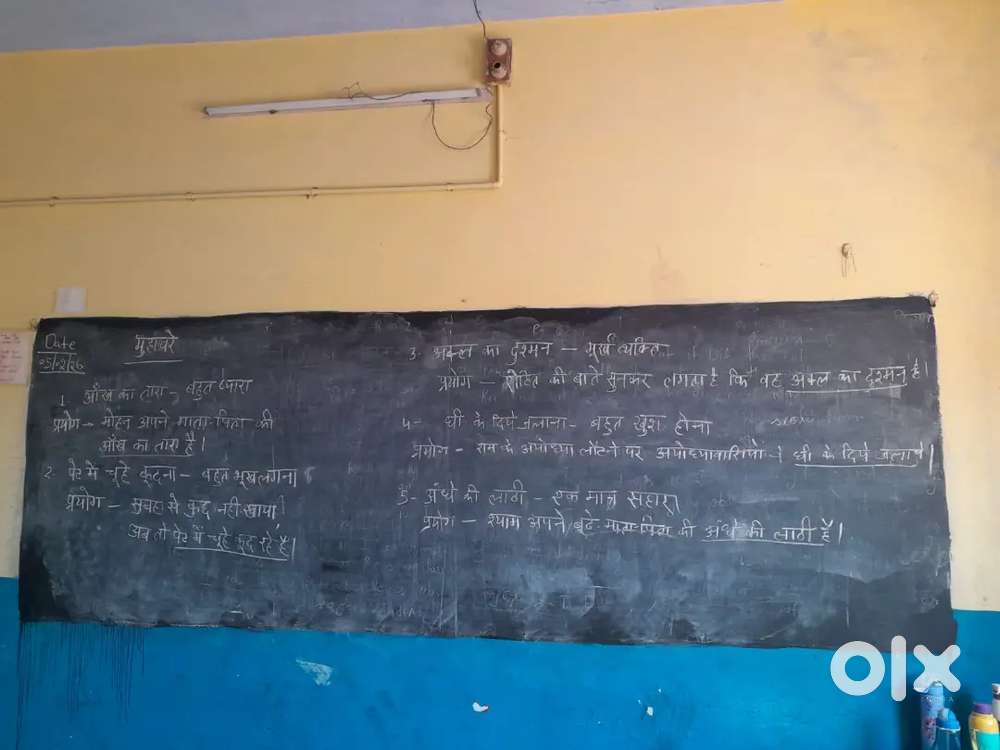 Date
मुहावरे
1. आँख का तारा - बहुत प्यारा
प्रयोग - मोहन अपने माता-पिता की
आँख का तारा है।
2. पेट में चूहे कूदना - बहुत भूख लगना
प्रयोग - सुबह से कुछ नहीं खाया
अब तो पेट में चूहे कूद रहे है।
3. अक्ल का दुश्मन - मूर्ख व्यक्ति
प्रयोग - रोहित की बाते सुनकर लगता है कि वह अक्ल का दुश्मन है।
4- घी के दिये जलाना - बहुत खुश होना
प्रयोग - राम के अयोध्या लौटने पर अयोध्यावासियो घी के दिये जलाये।
5- अंधे की लाठी - एक मात्र सहारा
प्रयोग - श्याम अपने बूढे माता-पिता की अंधे की लाठी है।
olx